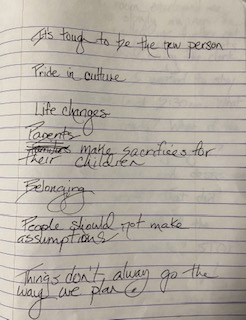 It's tough to be the new person
Pride in culture
Life changes
Parents
make sacrifices for
their children
Belonging
People should not make
assumptions
Things don't alway go the
way we plan.